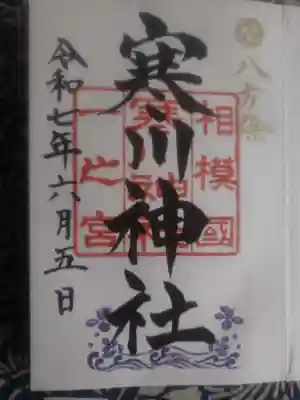 八方除
寒川神社
相模國
寒川神社
一之宮
令和七年六月五日